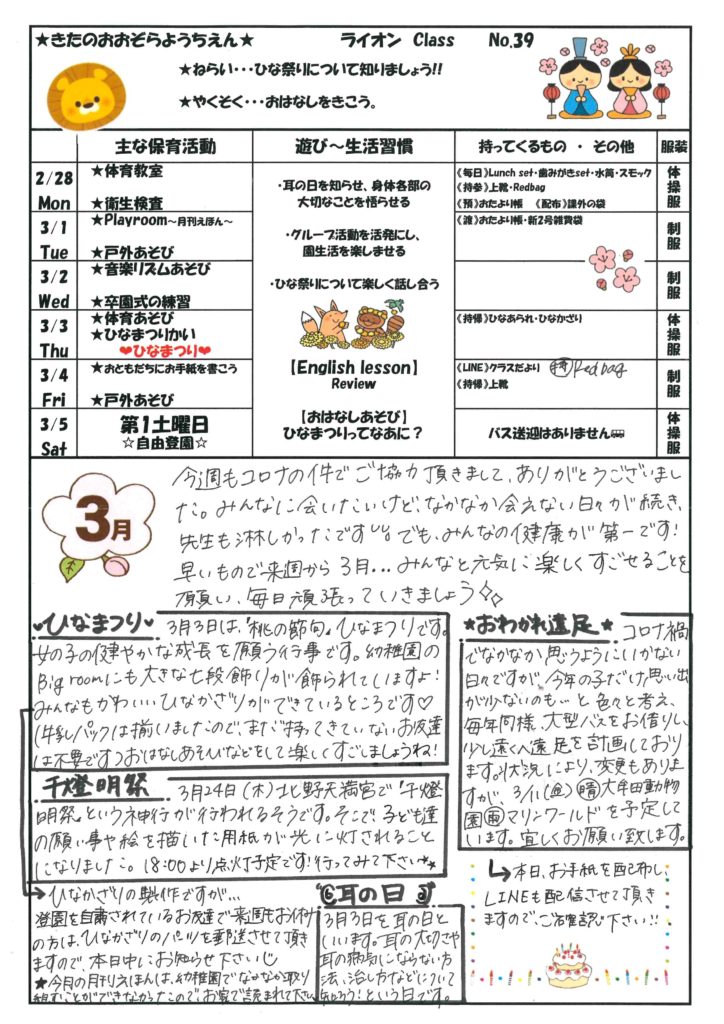 ★きたのおおぞらようちえん★　ライオン Class　No.39
★ねらい・・・ひな祭りについて知りましょう!!
★やくそく・・・おはなしをきこう。
主な保育活動　遊び～生活習慣　持ってくるもの ・ その他　服装
2/28 Mon
★体育教室
★衛生検査
《毎日》Lunch set・歯みがきset・水筒・スモック
《持参》上靴・Redbag
《預》おたより帳　《配布》課外の袋
体操服
3/1 Tue
★Playroom～月刊えほん～
★戸外あそび
《渡》おたより帳・新2号雑費袋
制服
3/2 Wed
★音楽リズムあそび
★卒園式の練習
制服
3/3 Thu
★体育あそび
★ひなまつりかい
❤ひなまつり❤
《持帰》ひなあられ・ひなかざり
体操服
3/4 Fri
★おともだちにお手紙を書こう
★戸外あそび
《LINE》クラスだより　持帰 Redbag
《持帰》上靴
制服
3/5 Sat
第1土曜日
☆自由登園☆
バス送迎はありません
体操服
・耳の日を知らせ、身体各部の
大切なことを悟らせる
・グループ活動を活発にし、
園生活を楽しませる
・ひな祭りについて楽しく話し合う
【English lesson】
Review
【おはなしあそび】
ひなまつりってなあに？
3月
今週もコロナの件でご協力頂きまして、ありがとうございまし
た。みんなに会いたいけど、なかなか会えない日々が続き、
先生も淋しかったです。でも、みんなの健康が第一です!
早いもので来週から3月...みんなと元気に楽しくすごせることを
願い、毎日頑張っていきましょう
ひなまつり　3月3日は、「桃の節句」、ひなまつりです。
女の子の健やかな成長を願う行事です。幼稚園の
Big roomにも大きな七段飾りが飾られていますよ!
みんなもかわいいひなかざりができているところです♡
(牛乳パックは揃いましたので、まだ持ってきていないお友達
は不要です)おはなしあそびなどをして楽しくすごしましょうね!
★おわかれ遠足★　コロナ禍
でなかなか思うようにいかない
日々ですが、今年の子だけ思い出
が少ないのも…と色々と考え、
毎年同様、大型バスをお借りし、
少し遠くへ遠足を計画しており
ます。状況により、変更もありま
すが、3/11(金)晴大牟田動物
園雨マリンワールドを予定して
います。宜しくお願い致します。
千燈明祭　3月24日(木)北野天満宮で「千燈
明祭」という神行が行われるそうです。そこで、子ども達
の願い事や絵を描いた用紙が光に灯されること
になりました。18:00より点灯予定です!行ってみて下さい★
→本日、お手紙を配布し、
LINEも配信させて頂き
ますので、ご確認下さい!!
→ひなかざりの製作ですが…
登園を自粛されているお友達で来週もお休み
の方は、ひなかざりのパーツを郵送させて頂き
ますので、本日中にお知らせ下さい
★今月の月刊えほんは、幼稚園でなかなか取り
組むことができなかったので、お家で読まれて下さい
耳の日
3月3日を耳の日と
いいます。耳の大切さや
耳の病気にならない方
法、治し方などについて
知ろう!という日です。